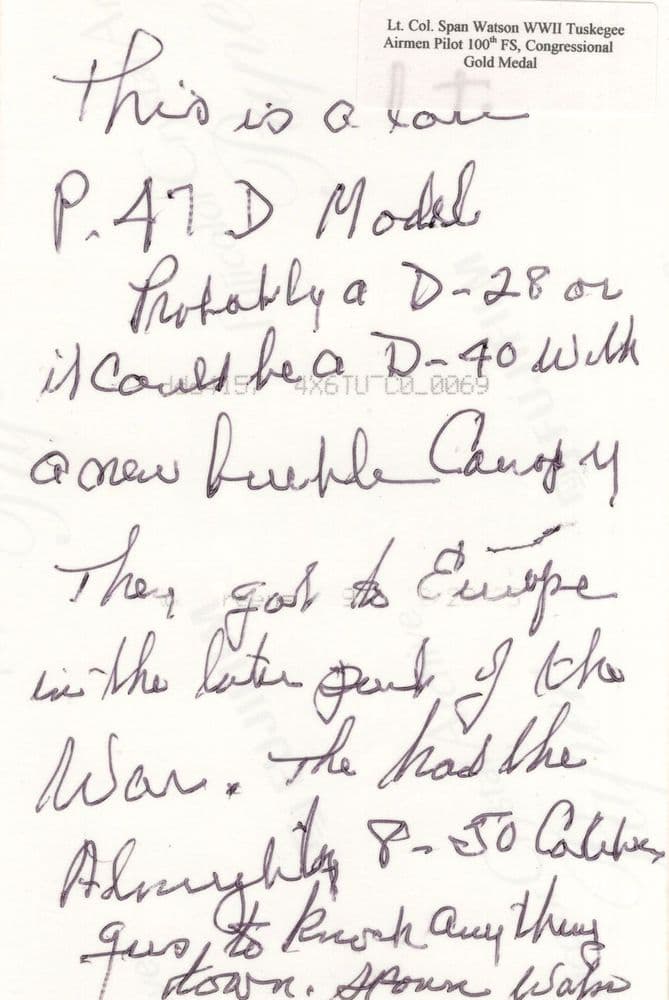 Lt. Col. Span Watson WWII Tuskegee
Airmen Pilot 100th FS, Congressional
Gold Medal
This is a late
P.47 D Model
Probably a D-28 or
it could be a D-40 with
4X6TU CO_0069
a new bubble Canopy
They got to Europe
in the later part of the
War. The had the
Almighty 8-50 Caliber
guns to knock anything
down. Spann Watson